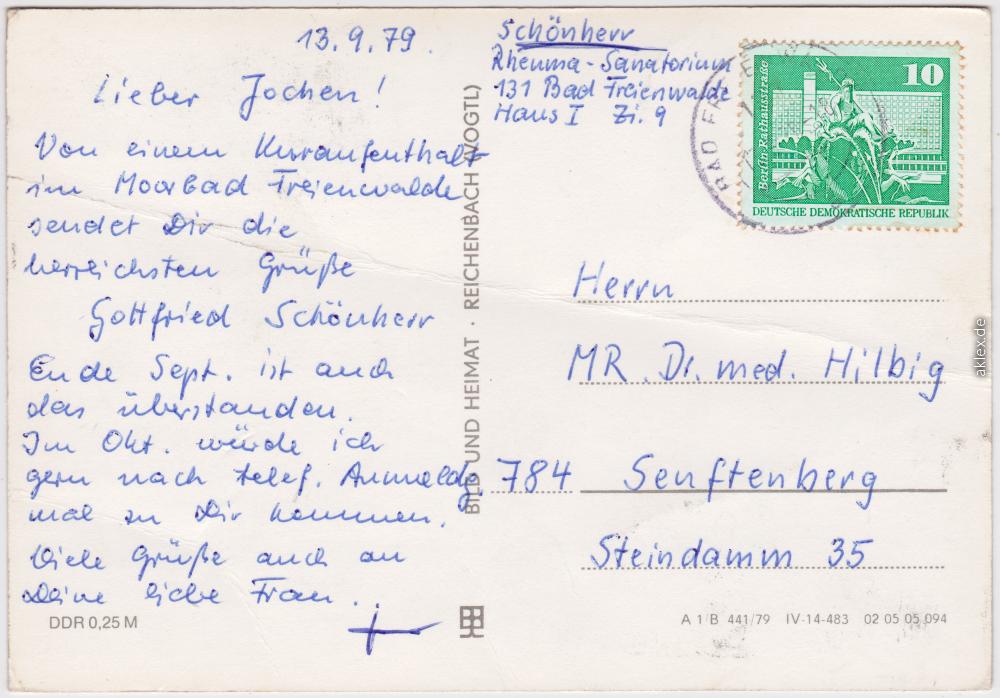 13.9.79.
Lieber Jochen!
Von einem Kuraufenthalt
im Moorbad Freienwalde
sendet Dir die
herzlichsten Grüße
Gottfried Schönherr
Ende Sept. ist auch
das überstanden.
Im Okt. würde ich
gern nach telef. Anmeldg.
mal zu Dir kommen.
Viele Grüße auch an
Deine liebe Frau.
DDR 0,25 M
BILD UND HEIMAT · REICHENBACH (VOGTL)
Schönherr
Rheuma-Sanatorium
131 Bad Freienwalde
Haus I Zi. 9
BAD FREIEN
10
Berlin-Rathausstraße
DEUTSCHE DEMOKRATISCHE REPUBLIK
Herrn
MR. Dr. med. Hilbig
784 Senftenberg
Steindamm 35
A 1/B 441/79 IV-14-483 02 05 05 094
aklex.de